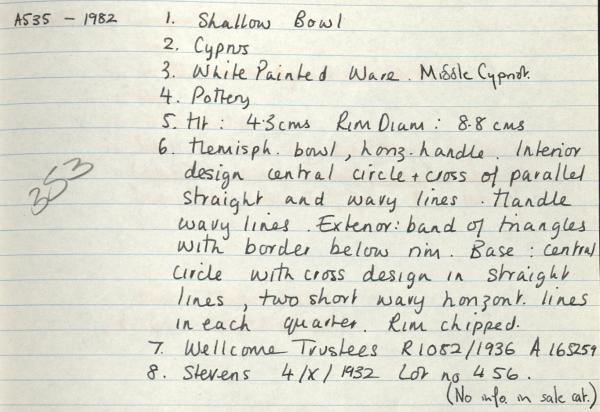 A535 - 1982 1. Shallow Bowl
2. Cyprus
3. White Painted Ware. Middle Cypriot.
4. Pottery
5. Ht: 4.3cms Rim Diam: 8.8 cms
6. Hemisph. bowl, horiz. handle. Interior
design central circle + cross of parallel
353
straight and wavy lines. Handle
wavy lines. Exterior: band of triangles
with border below rim. Base: central
circle with cross design in straight
lines, two short wavy horizont. lines
in each quarter. Rim chipped.
7. Wellcome Trustees R1082/1936 A 165259
8. Stevens 4/X/1932 Lot no 456.
(No info. in sale cat.)